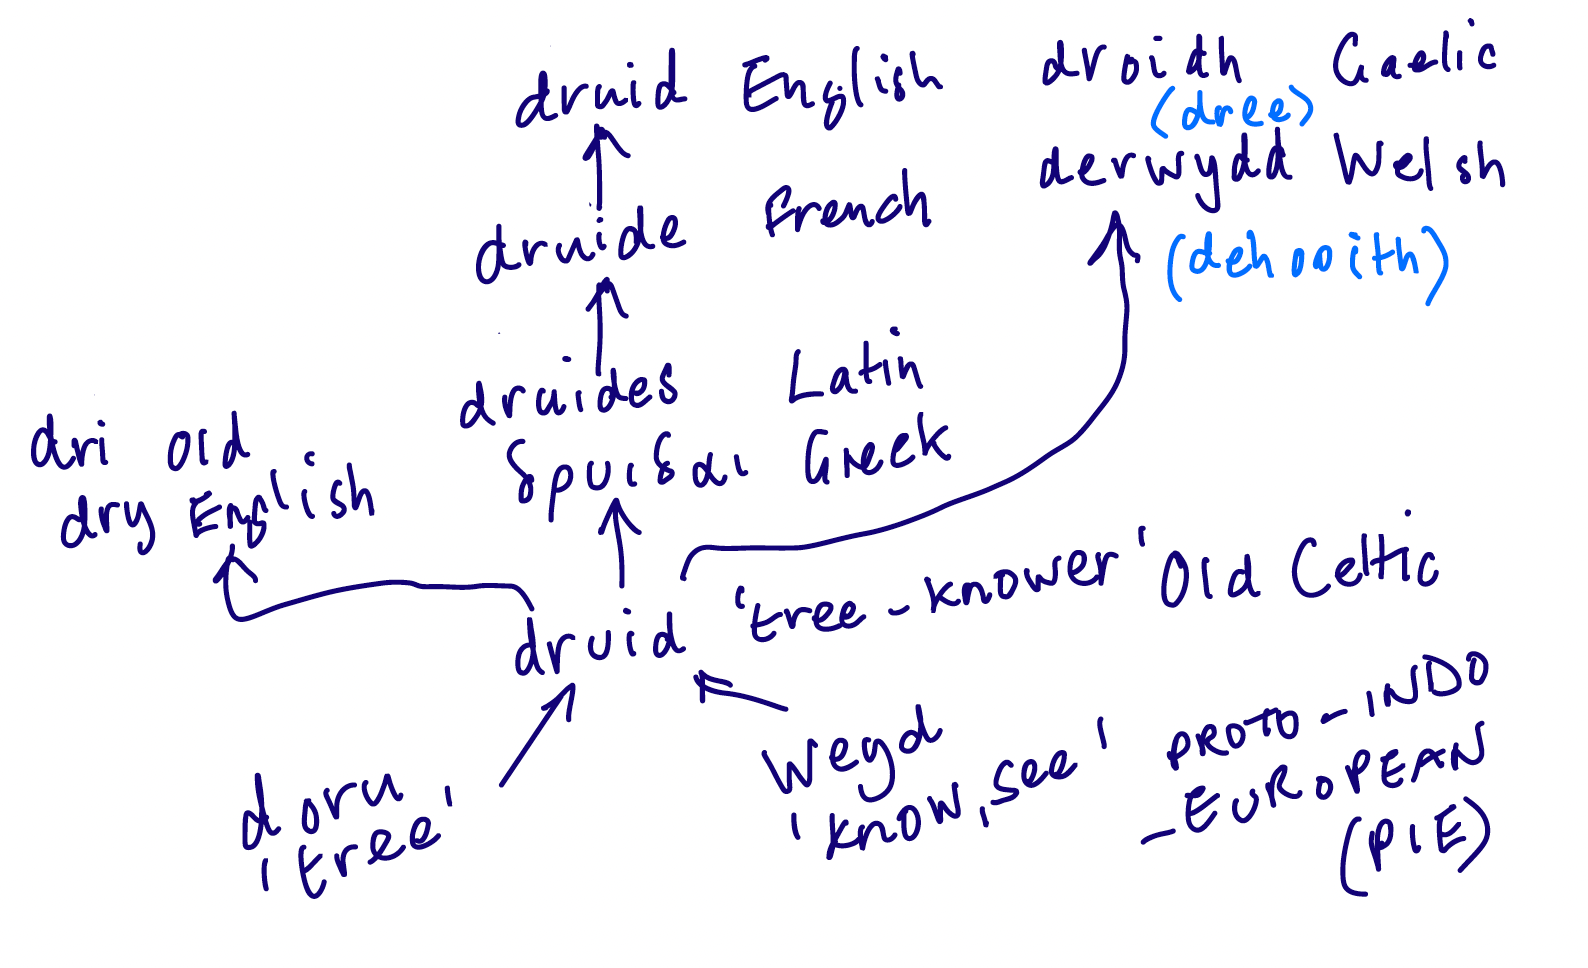 druid English
droidh Gaelic
(dree)
derwydd Welsh
(dehooith)
druide French
druides Latin
δρυιδαι Greek
dri old
dry English
druid 'tree-knower' Old Celtic
doru
'tree'
Weyd
'know, see'
PROTO-INDO
-EUROPEAN
(PIE)